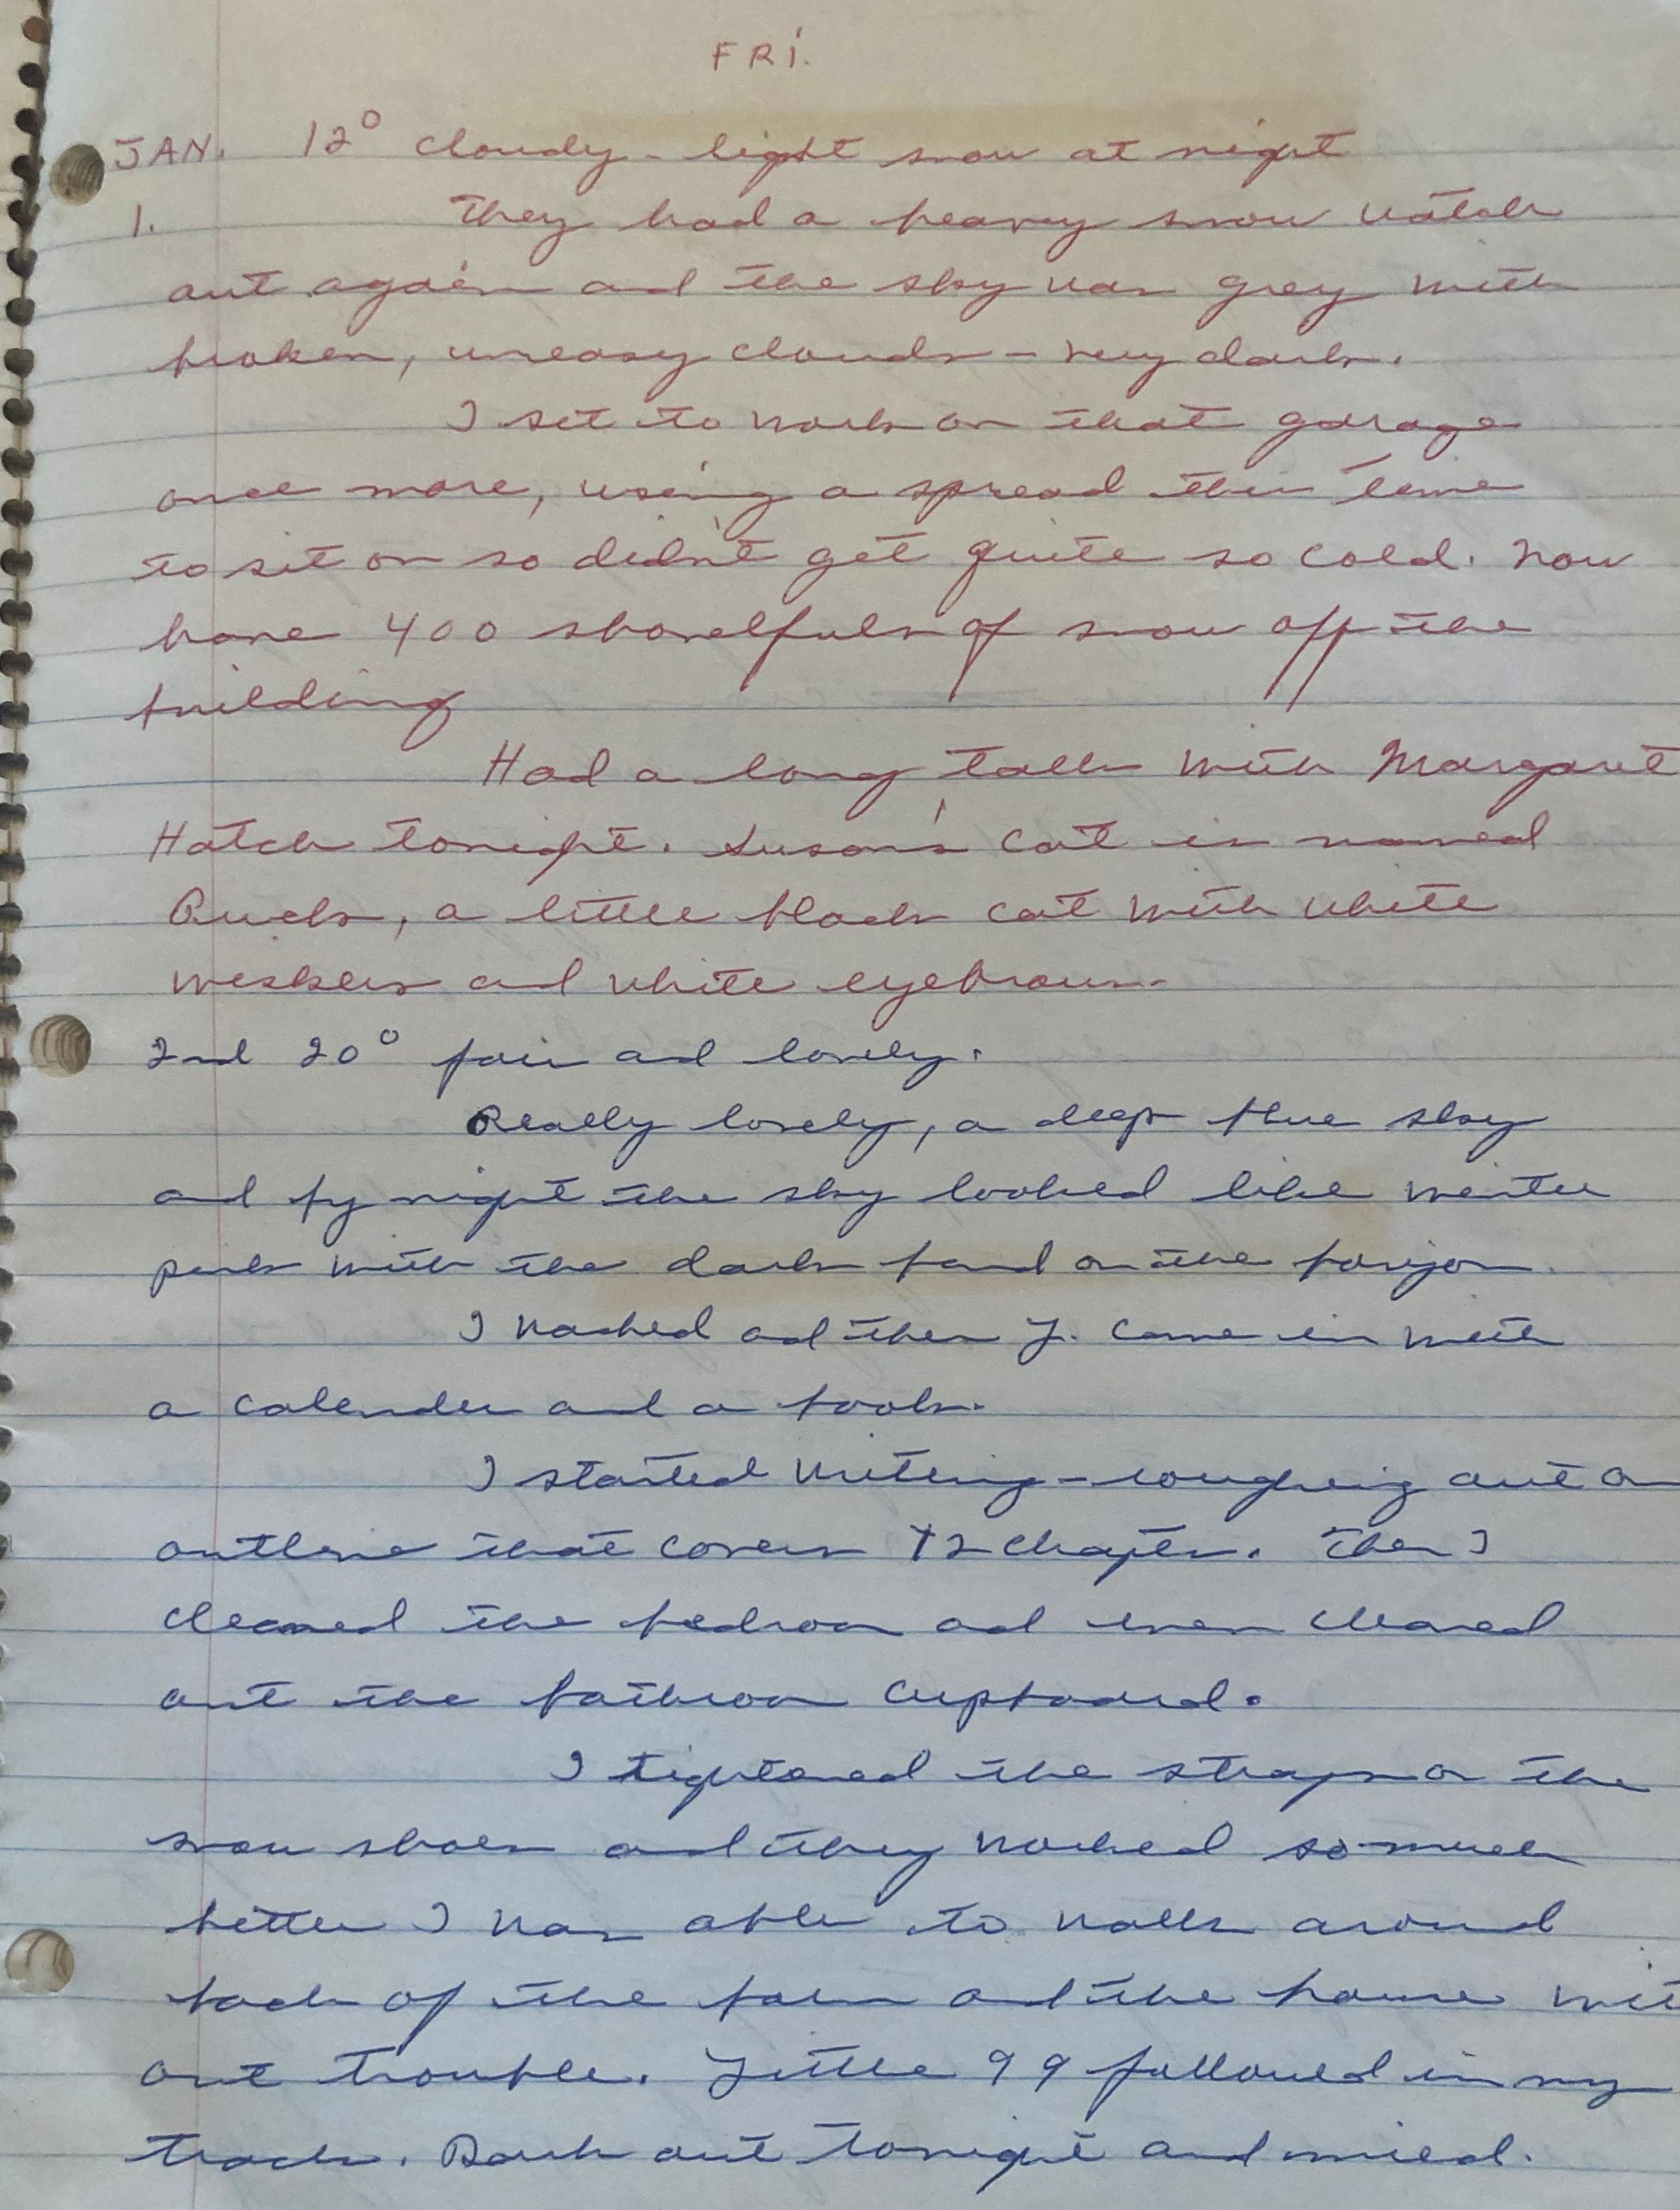 FRI.
JAN. 12° cloudy - light snow at night
1. They had a heavy snow watch
out again and the sky was grey with
broken, uneasy clouds - very dark.
I set to work on that garage
once more, using a spread this time
to sit on so didn't get quite so cold. Now
have 400 shovelfuls of snow off the
building
Had a long talk with Margaret
Hatch tonight. Susan's cat is named
Puck, a little black cat with white
wiskers and white eyebrows.
2nd 20° fair and lovely.
Really lovely, a deep blue sky
and by night the sky looked like winter
pink with the dark band on the horizon.
I washed and then J. came in with
a calender and a book.
I started writing - roughing out an
outline that covers 12 chapters. Then I
cleaned the bedroom and even cleaned
out the bathroom cupboard.
I tightened the straps on the
snow shoes and they worked so much
better I was able to walk around
back of the barn and the house with
out trouble. Little 99 followed in my
track. Dark out tonight and mild.